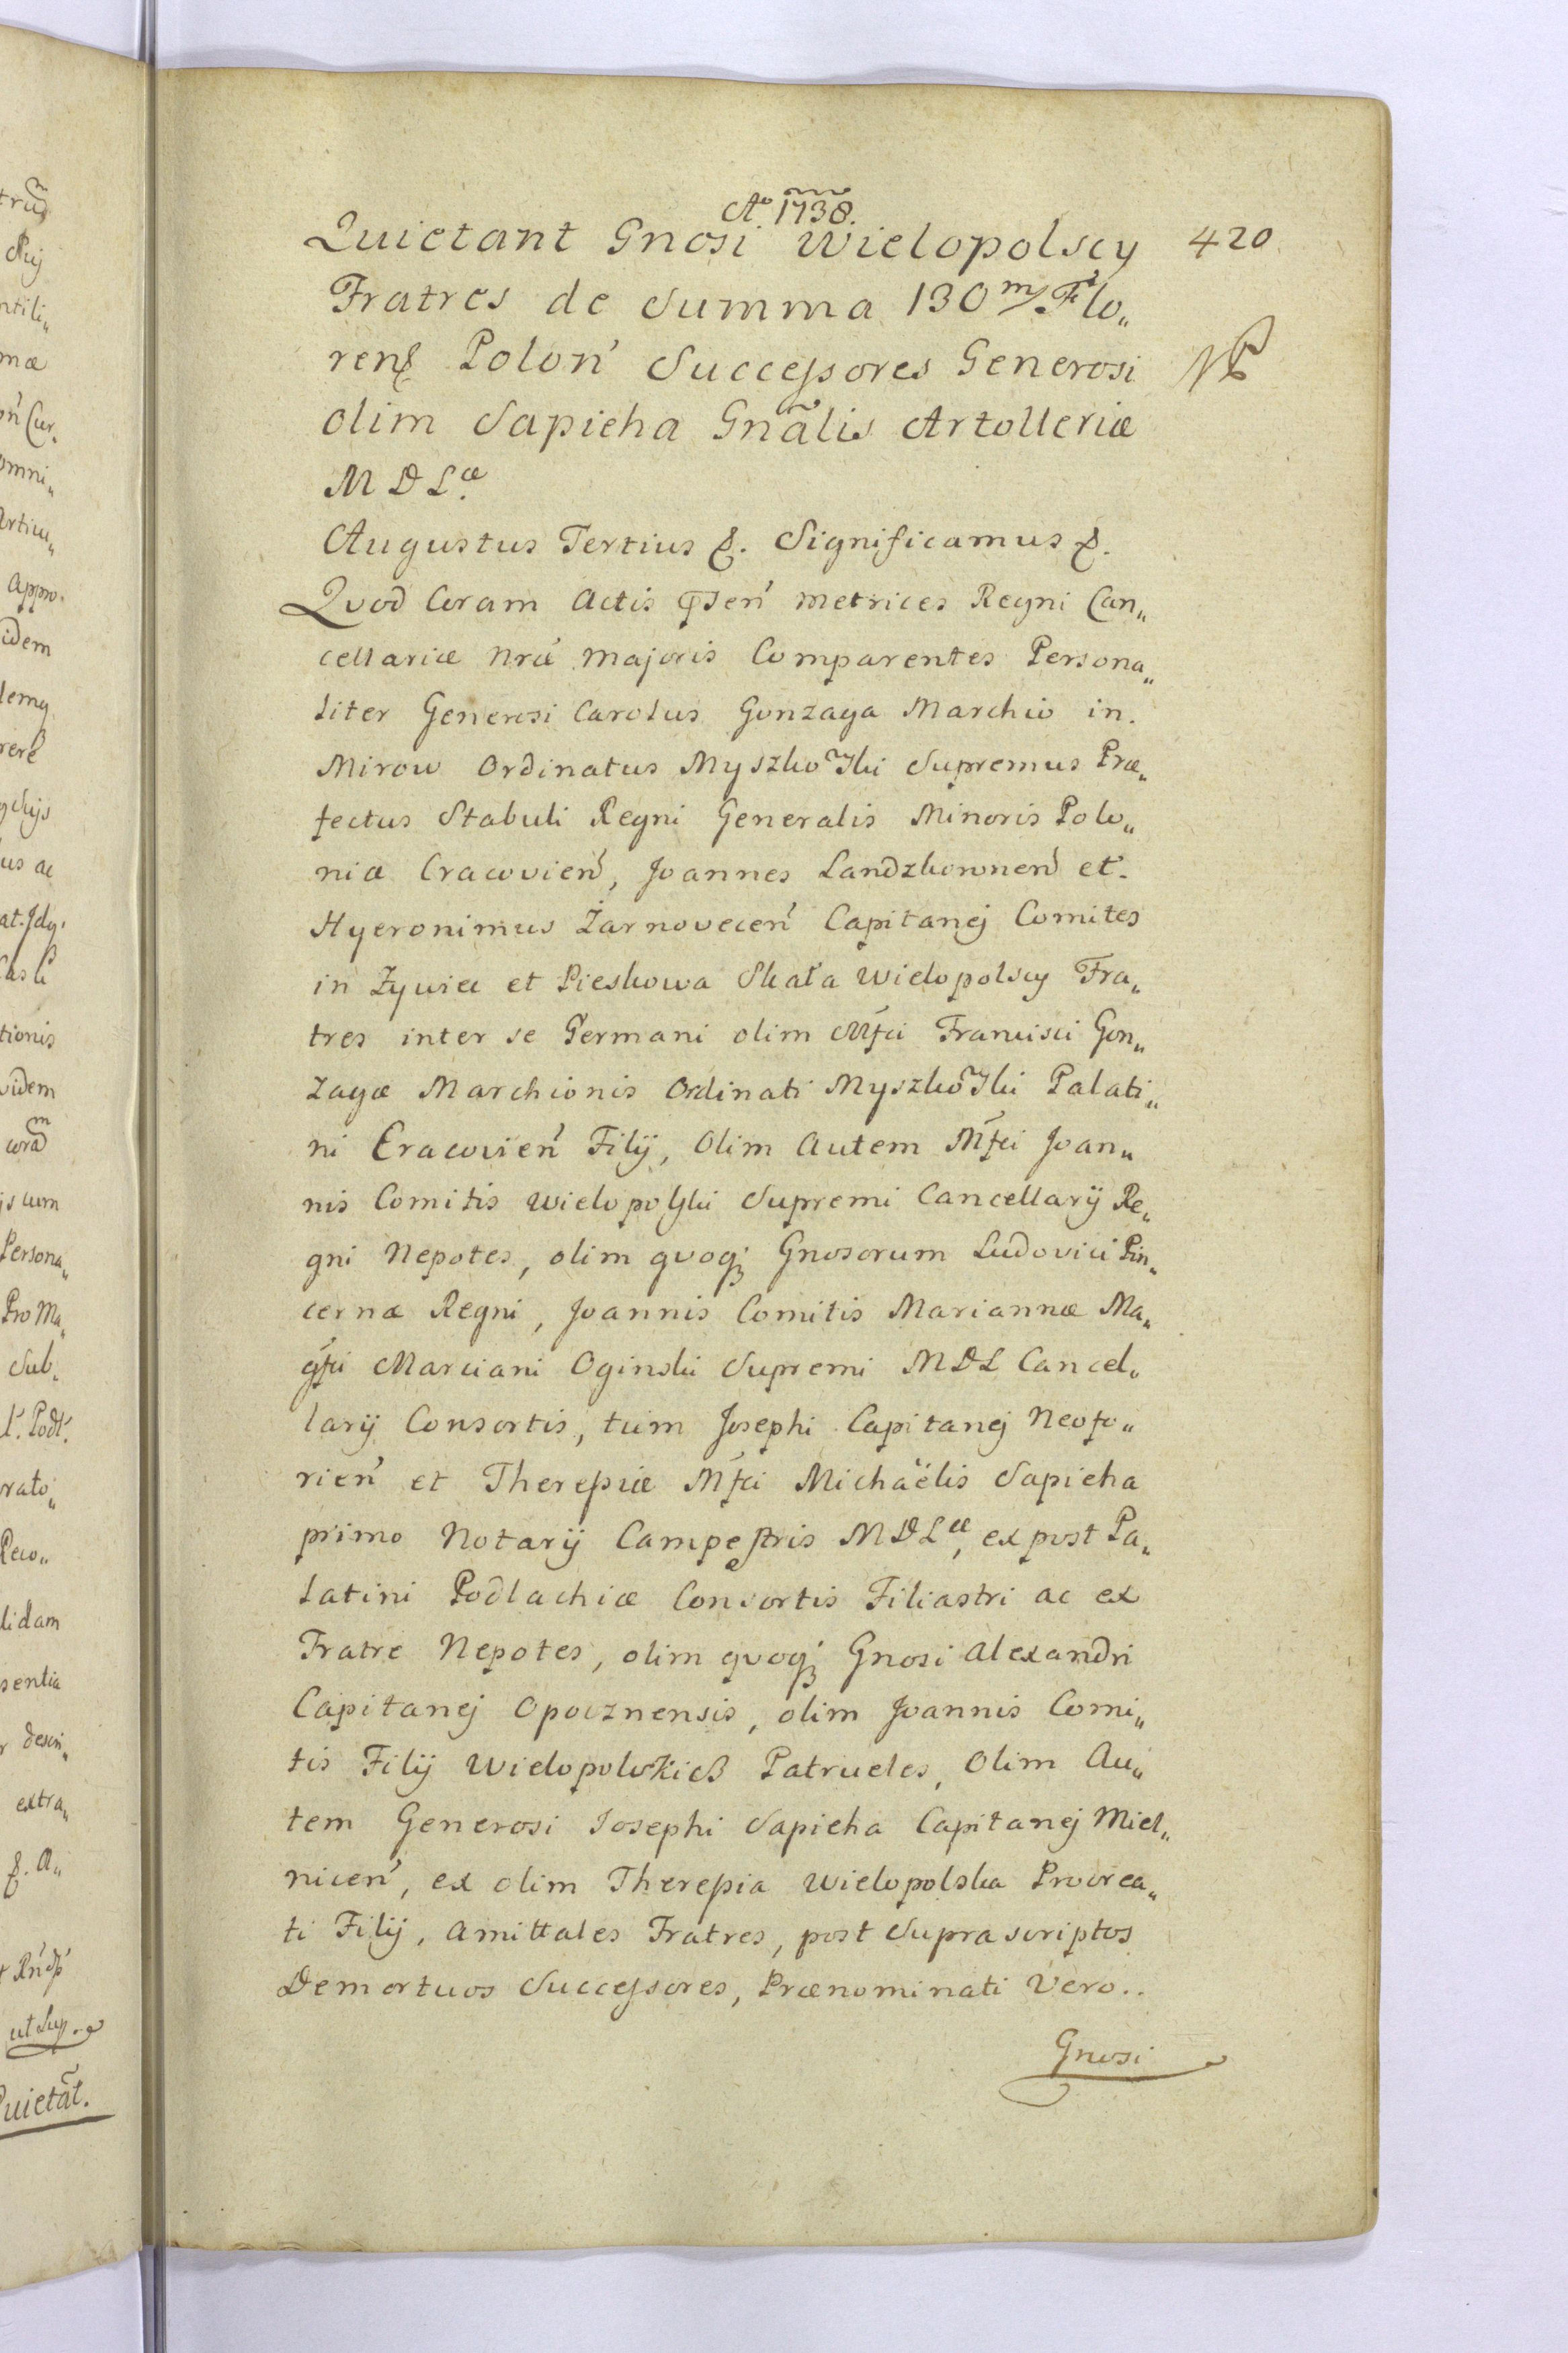 Aº 1738.
Quietant Gnosi Wielopolscy 420
Fratres de Summa 130 m/ Flo„
Polon' Successores Generosi
olim Sapieha Gnãlis Artolleriæ
M D L æ.
Augustus Tertius &. Significamus &.
Quod Coram Actis metrices Regni Can„
cellariæ nræ majoris Comparentes Persona„
liter Generosi Carolus Gonzaga Marchio in.
Mirow Ordinatus Myszkowski Supremus Præ„
fectus Stabuli Regni Generalis Minoris Polo„
niæ Cracovien', Joannes Landzkownen' et.
Hyeronimus Żarnovecen' Capitanej Comites
in Zywiec et Pieskowa Skała Wielopolscy Fra„
tres inter se Germani olim Mfci Francisci Gon„
zagæ Marchionis Ordinati Myszkowski Palati„
ni Cracovien' Filij, Olim Autem Mfci Joan„
nis Comitis Wielopolski Supremi Cancellarij Re„
gni Nepotes, olim quoq; Gnosorum Ludovici Pin„
cernæ Regni, Joannis Comitis Mariannæ Ma„
gfci Marciani Oginski Supremi MDL Cancel„
larij Consortis, tum Josephi Capitanej Neofo„
rien' et Theressiæ Mfci Michaëlis Sapieha
primo Notarij Campestris MDLæ, ex post Pa„
latini Podlachiæ Consortis Filiastri ac ex
Fratre Nepotes, olim quoq; Gnosi Alexandri
Capitanej Opocznensis, olim Joannis Comi„
tis Filij Wielopolskich Patrueles, Olim Au„
tem Generosi Josephi Sapieha Capitanej Miel„
nicen', ex olim Theressia Wielopolska Procrea„
ti Filij, Amittales Fratres, post Supra scriptos
Demortuos Successores, Prænominati Vero..
Gnosi